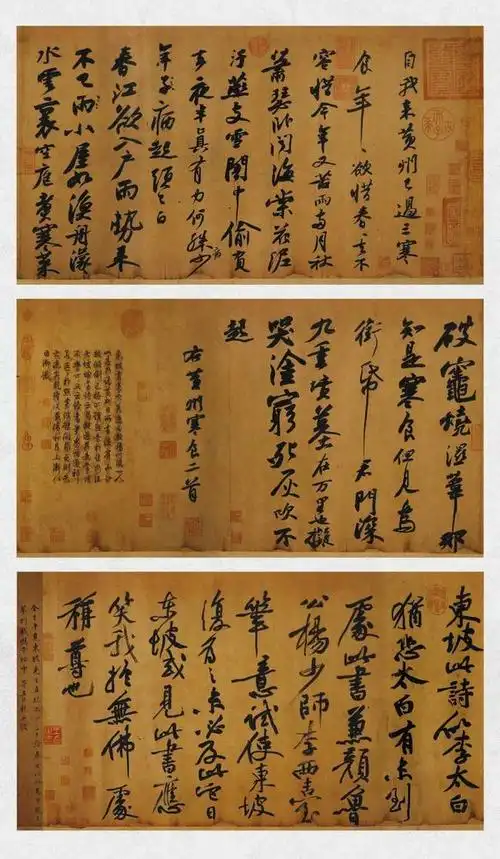 自我来黄州已過三寒
食年〻欲惜春〻去不
容惜今年又苦雨兩月秋
蕭瑟卧聞海棠花泥
汙燕支雪闇中偷負
去夜半真有力何殊病少
年子病起須已白
春江欲入户雨勢来
不已雨小屋如漁舟濛〻
水雲裏空庖煮寒菜
破竈燒溼葦那
知是寒食但見烏
銜帋君門深
九重墳墓在万里也擬
哭塗窮死灰吹不
起
右黄州寒食二首
東坡此詩似李太白
猶恐太白有未到
處此書兼顔魯
公楊少師李西臺
筆意試使東坡
復為之未必及此它日
東坡或見此書應
笑我於無佛處
稱尊也